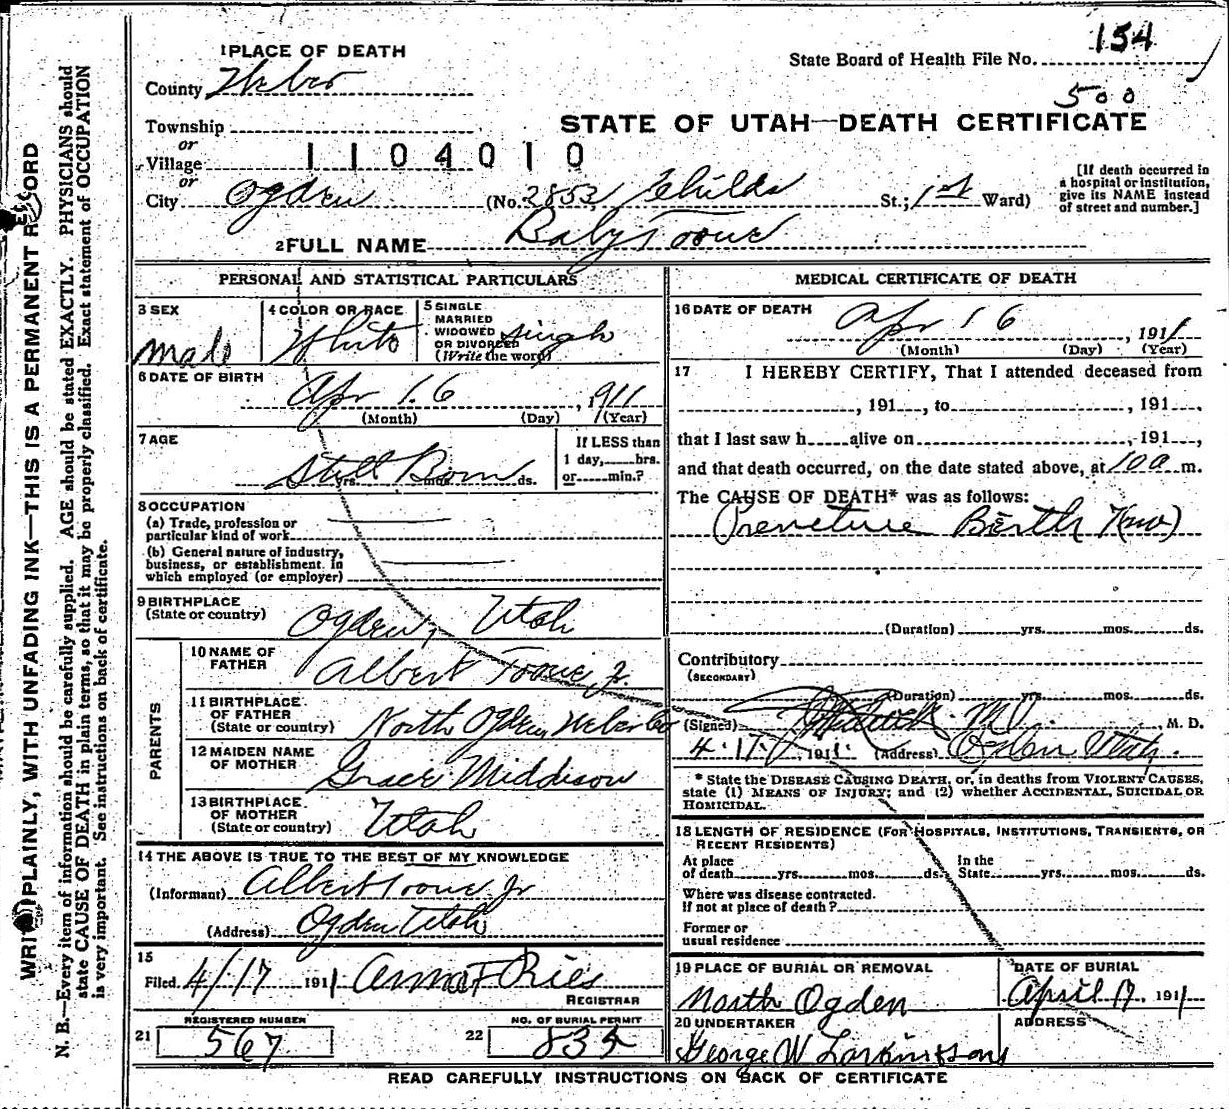 1 PLACE OF DEATH
154
State Board of Health File No.
County Weber
500
Township
STATE OF UTAH—DEATH CERTIFICATE
or
Village
1104010
or
City Ogden (No. 2853 Childs St.; 1st Ward)
[If death occurred in
a hospital or institution,
give its NAME instead
of street and number.]
2 FULL NAME Baby Toone
PERSONAL AND STATISTICAL PARTICULARS
3 SEX
male
4 COLOR OR RACE
White
5 SINGLE
MARRIED
WIDOWED
OR DIVORCED
(Write the word)
Single
6 DATE OF BIRTH
Apr 16, 1911
(Month) (Day) (Year)
7 AGE
Still Born
yrs. ds.
If LESS than
1 day, hrs.
or min.?
8 OCCUPATION
(a) Trade, profession or
particular kind of work
(b) General nature of industry,
business, or establishment in
which employed (or employer)
9 BIRTHPLACE
(State or country)
Ogden, Utah
PARENTS
10 NAME OF
FATHER
Albert Toone Jr.
11 BIRTHPLACE
OF FATHER
(State or country)
North Ogden Weber Co
12 MAIDEN NAME
OF MOTHER
Grace Middison
13 BIRTHPLACE
OF MOTHER
(State or country)
Utah
14 THE ABOVE IS TRUE TO THE BEST OF MY KNOWLEDGE
(Informant) Albert Toone Jr
(Address) Ogden Utah
15
Filed 4/17 1911 Anna F Ries
REGISTRAR
REGISTERED NUMBER
21 567
NO. OF BURIAL PERMIT
22 835
MEDICAL CERTIFICATE OF DEATH
16 DATE OF DEATH
Apr 16, 1911
(Month) (Day) (Year)
17 I HEREBY CERTIFY, That I attended deceased from
, 191 , to , 191 ,
that I last saw h alive on , 191 ,
and that death occurred, on the date stated above, at 100 m.
The CAUSE OF DEATH* was as follows:
Premeture Berth 7(mo)
(Duration) yrs. mos. ds.
Contributory
(SECONDARY)
(Duration) yrs. mos. ds.
(Signed) M.D., M. D.
4.17, 1911. (Address) Ogden Utah.
* State the DISEASE CAUSING DEATH, or, in deaths from VIOLENT CAUSES,
state (1) MEANS OF INJURY; and (2) whether ACCIDENTAL, SUICIDAL OR
HOMICIDAL.
18 LENGTH OF RESIDENCE (FOR HOSPITALS, INSTITUTIONS, TRANSIENTS, OR
RECENT RESIDENTS)
At place
of death yrs. mos. ds.
In the
State yrs. mos. ds.
Where was disease contracted.
If not at place of death?
Former or
usual residence
19 PLACE OF BURIAL OR REMOVAL
North Ogden
DATE OF BURIAL
April 17, 1911
20 UNDERTAKER
George W Larkin & sons
ADDRESS
READ CAREFULLY INSTRUCTIONS ON BACK OF CERTIFICATE
WRITE PLAINLY, WITH UNFADING INK—THIS IS A PERMANENT RECORD
N. B.—Every item of information should be carefully supplied. AGE should be stated EXACTLY. PHYSICIANS should
state CAUSE OF DEATH in plain terms, so that it may be properly classified. Exact statement of OCCUPATION
is very important. See instructions on back of certificate.